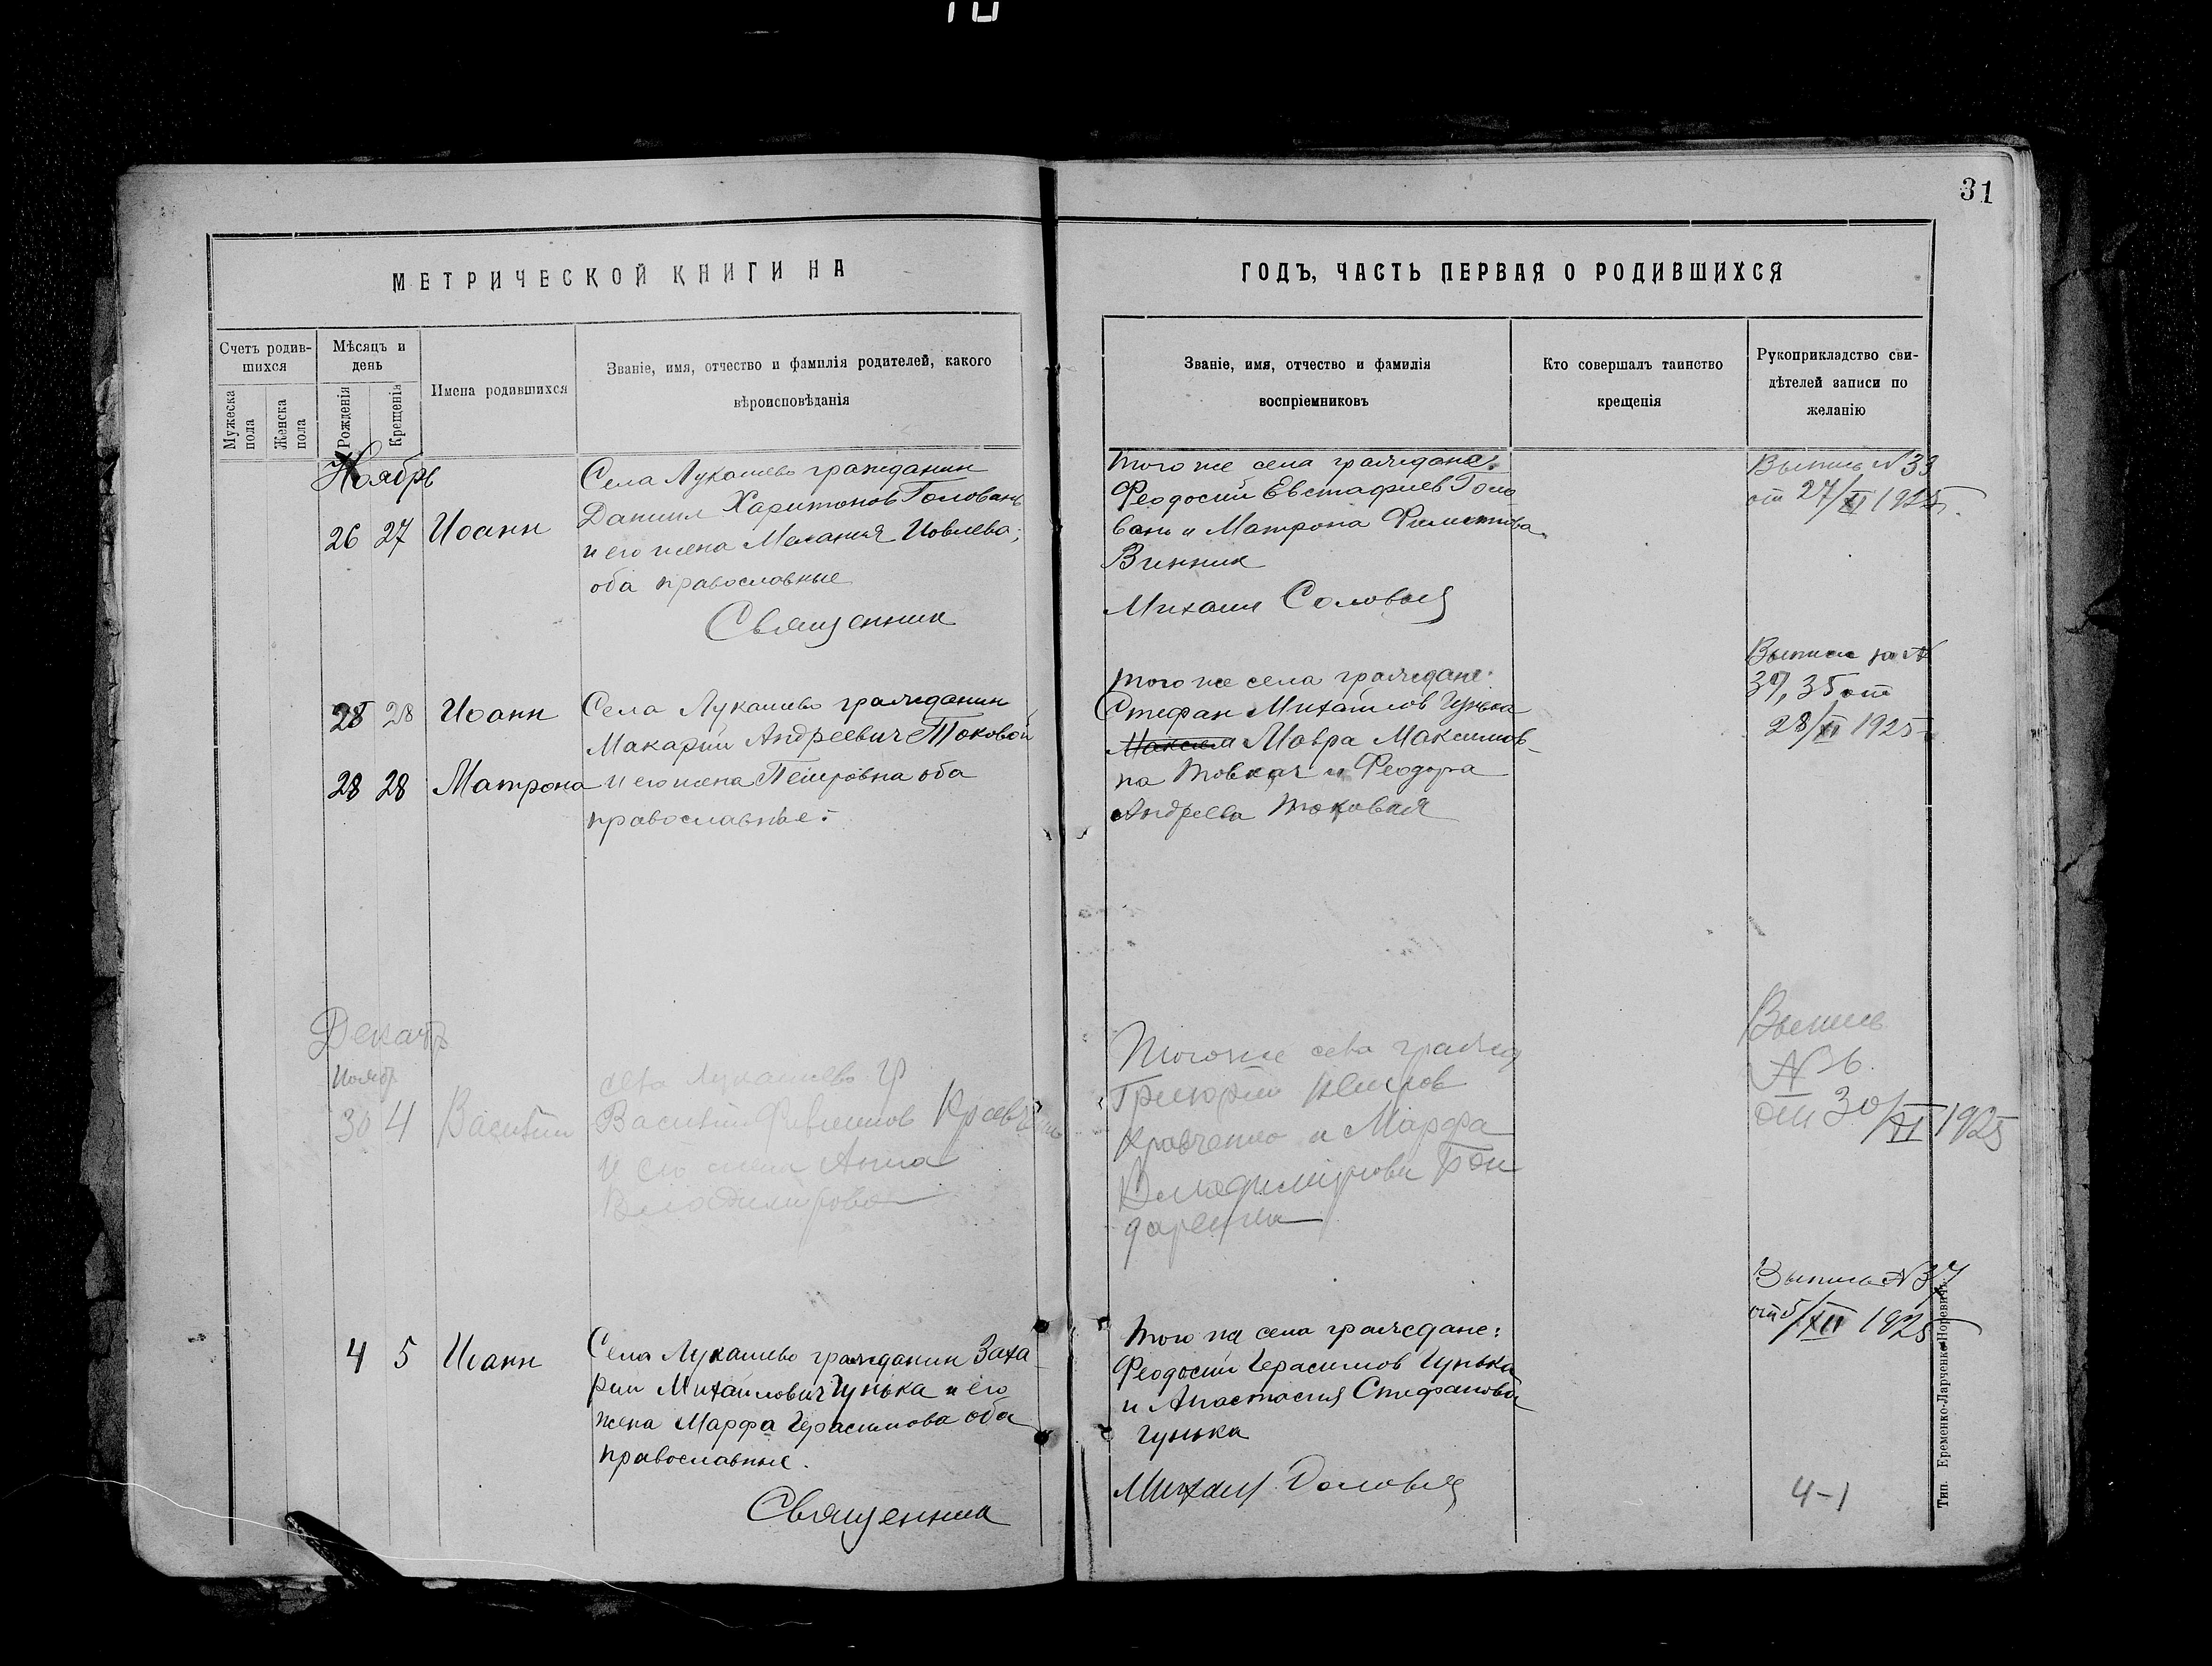 31
МЕТРИЧЕСКОЙ КНИГИ НА
ГОДЪ, ЧАСТЬ ПЕРВАЯ О РОДИВШИХСЯ
Счетъ родив-
шихся
Мужеска пола
Женска пола
Мѣсяцъ и
день
Рожденія
Крещенія
Имена родившихся
Званіе, имя, отчество и фамилія родителей, какого
вѣроисповѣданія
Званіе, имя, отчество и фамилія
воспріемниковъ
Кто совершалъ таинство
крещенія
Рукоприкладство сви-
дѣтелей записи по
желанію
Ноябрь
26 27 Иоанн
Села Лукашево гражданин
Даниил Харитонов Головань
и его жена Мелания Иовлева;
оба православные
Священник
того же села граждане:
Феодосий Евстафиев Голо
вань и Матрона
Винник
Михаил Соловьев
Выпись №33
от 27/XI 1925 г.
28 28 Иоанн
28 28 Матрона
Села Лукашево гражданин
Макарий Андреевич Токовой
и его жена Петровна оба
православные.
того же села граждане:
Стефан Михайлов Гунька
Мавра Максимов-
на Товкая и Феодора
Андреева Токовая
Выписи за №
35 от
28/XI 1925
Декабр
Ноябр
30 4 Василий
села Лукашево гр
Василий
и его жена Анна
Владимирова
Того же села гражд
Григорий
Кравченко и Марфа
Владимирова Бон
даренко
Выпись
от 30/XI 1925
4 5 Иоанн
Села Лукашево гражданин Заха-
рий Михайлович Гунька и его
жена Марфа Герасимова оба
православные.
Священник
того же села граждане:
Феодосий Герасимов Гунька
и Анастасия Стефанова
Гунька
Михаил Соловьев
Выпись №37
от 5/XII 1925
4-1
Тип. Еременко-Ларченко-Норевичъ.